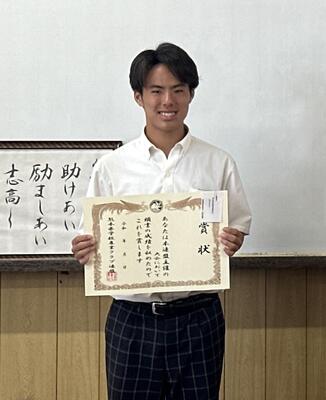 賞状
あなたは本連盟主催の
大会において
頭書の成績を収めたので
これを賞します
令和 年 月 日
助けあい
励ましあい
志高く